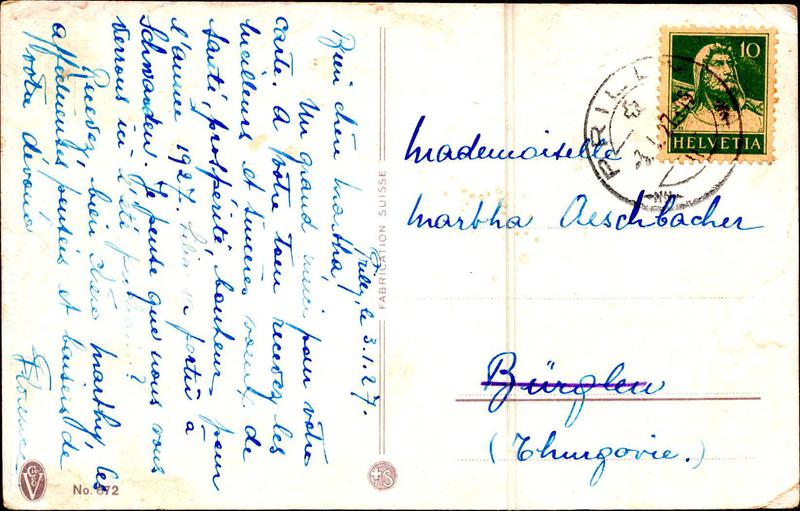 Prilly, le 3.1.27.
Bien chère Martha,
Un grand merci pour votre
carte. A votre tour recevez les
meilleurs et sincères voeux de
santé, prospérité, bonheur pour
l'année 1927.
Schwanden. Je pense que nous vous
verrons ici l'été
Recevez, bien chère Marthy, les
affectueuses pensées et baisers de
votre dévouée
Florence
FABRICATION SUISSE
No. 672
S
PRILLY
10
HELVETIA
Mademoiselle
Martha Aeschbacher
Bürglen
(Thurgovie.)